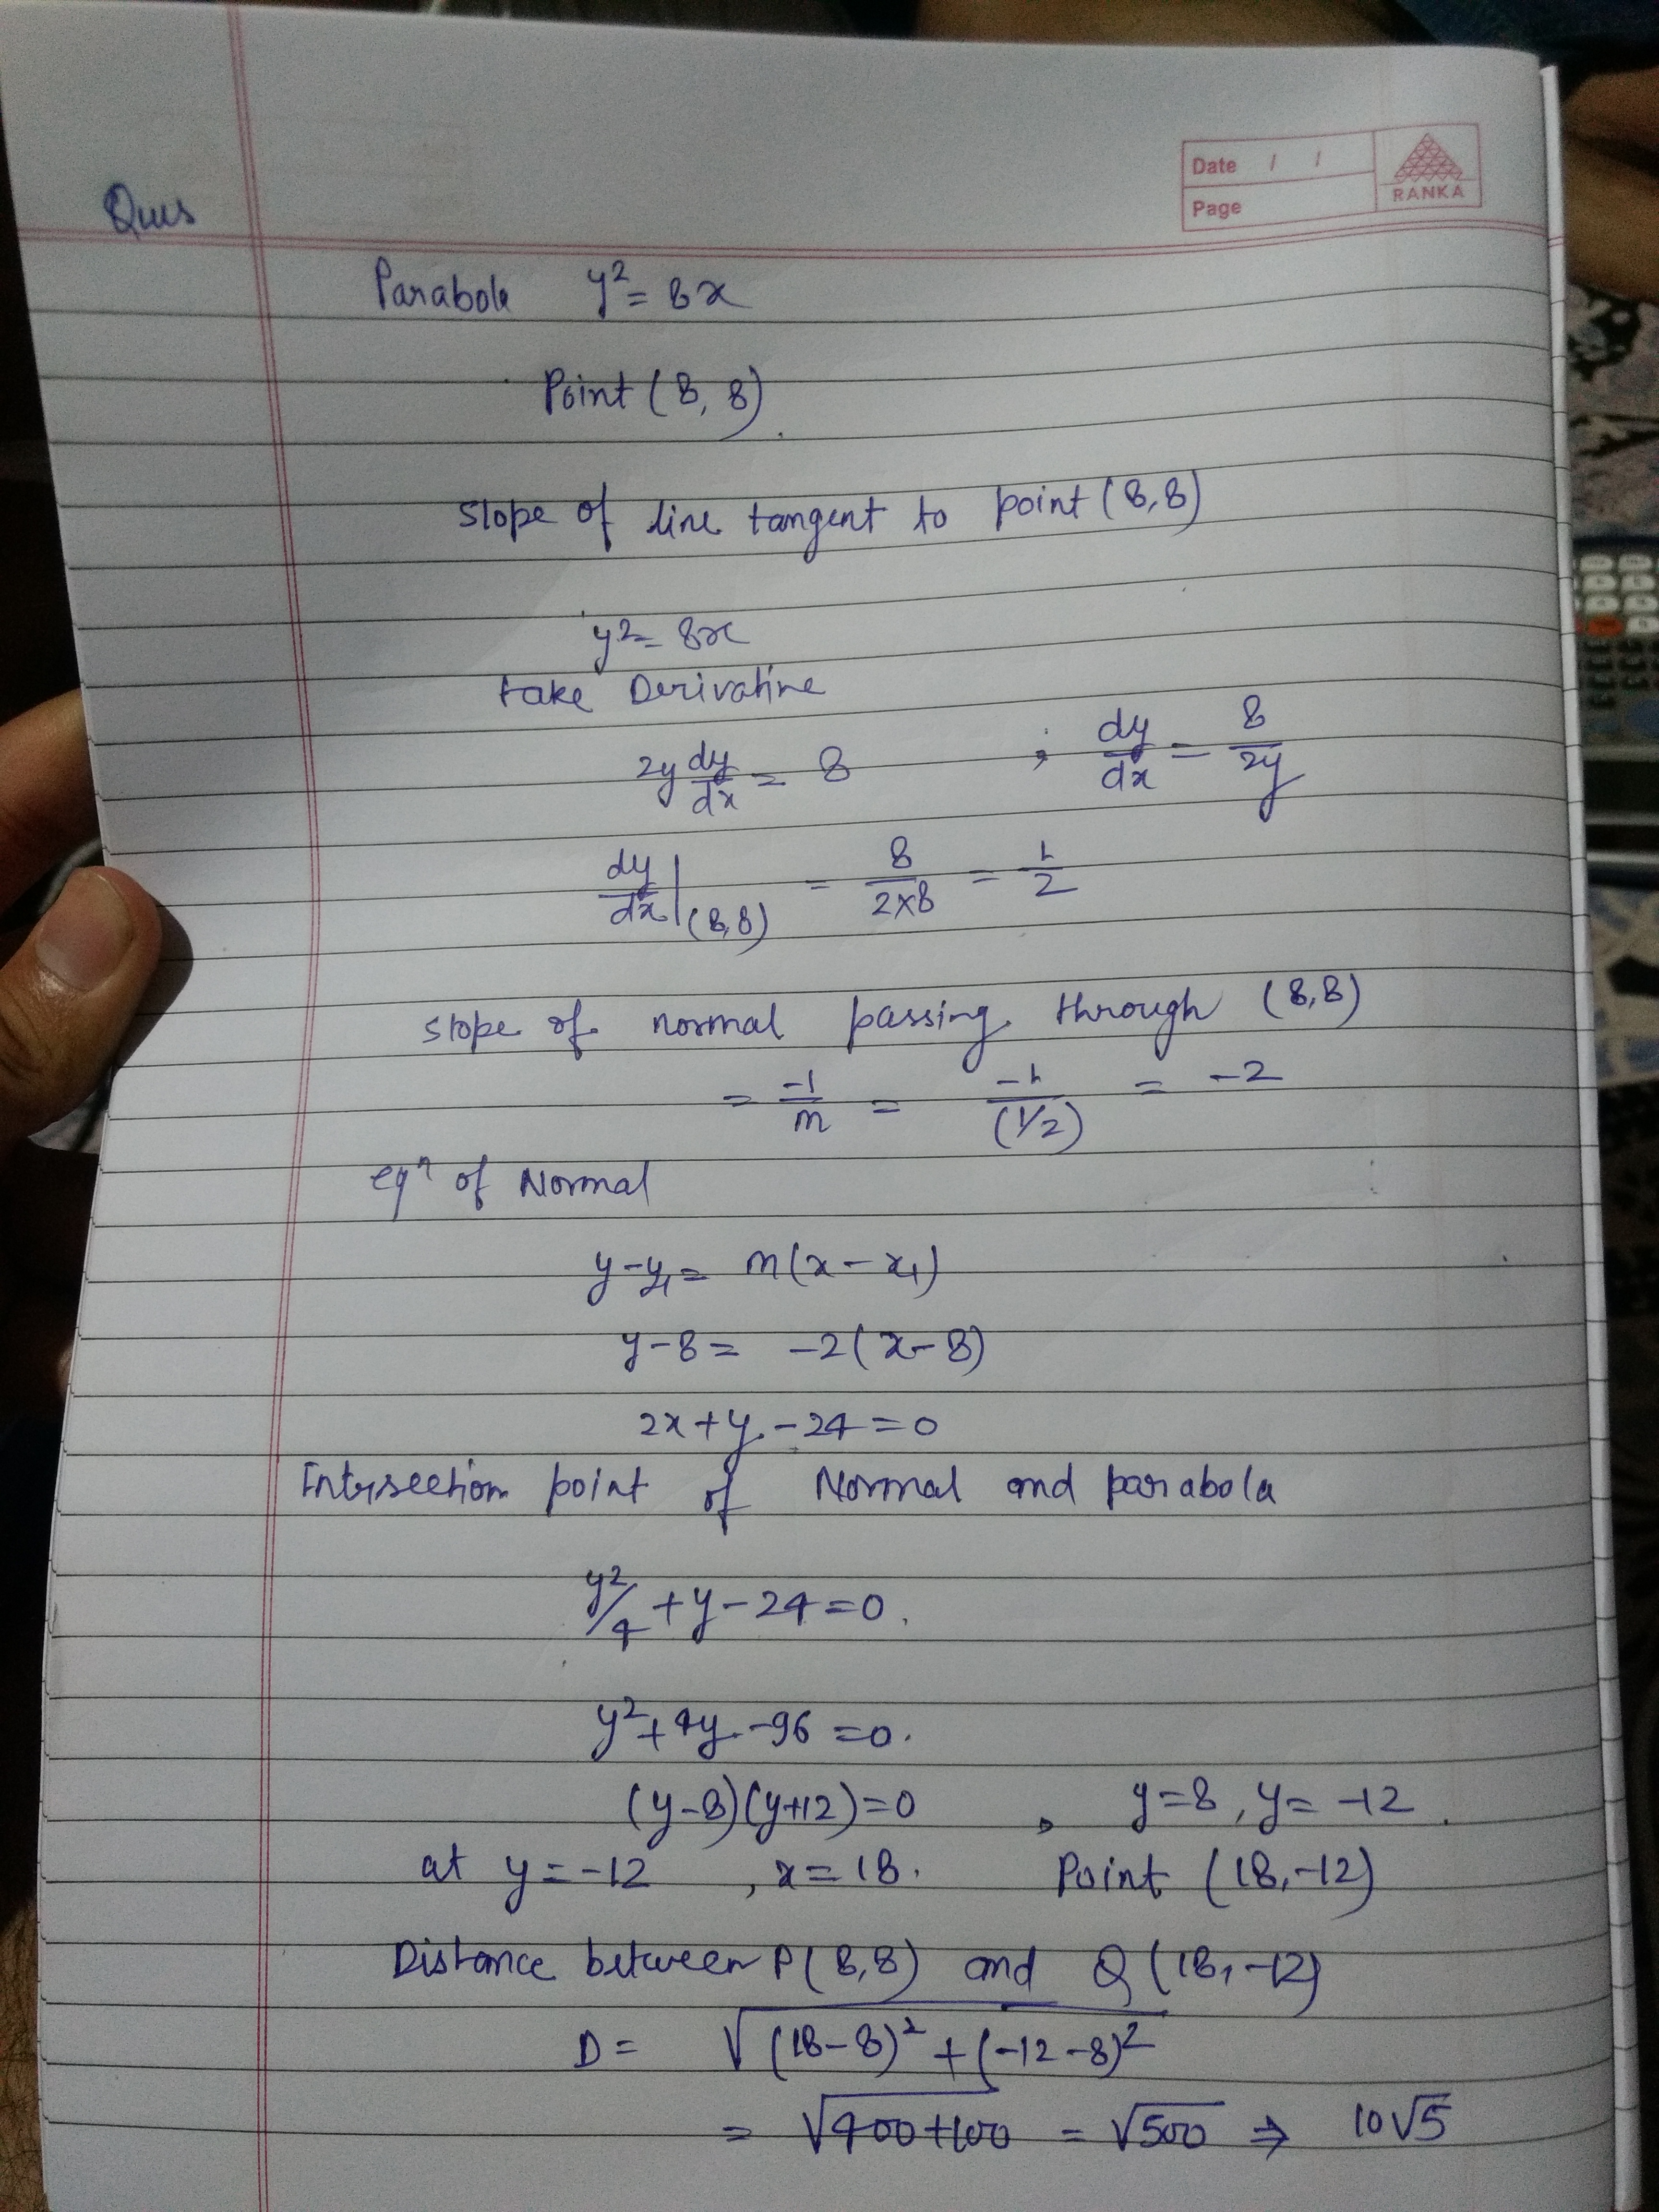 Date / /
RANKA
Page
Ques
Parabola y² = 8x
Point (8, 8).
slope of line tangent to point (8,8)
y² = 8x
take Derivative
2y dy/dx = 8 ; dy/dx = 8/2y
dy/dx |(8,8) = 8/2×8 = 1/2
slope of normal passing through (8,8)
= -1/m = -1/(1/2) = -2
eqⁿ of Normal
y-y₁ = m(x-x₁)
y-8 = -2(x-8)
2x+y-24=0
Intersection point of Normal and parabola
y²/4 +y-24=0.
y²+4y-96=0.
(y-8)(y+12)=0 , y=8, y=-12.
at y=-12 , x=18. Point (18,-12)
Distance between P(8,8) and Q(18,-12)
D = √(18-8)²+(-12-8)²
= √400+100 = √500 ⇒ 10√5